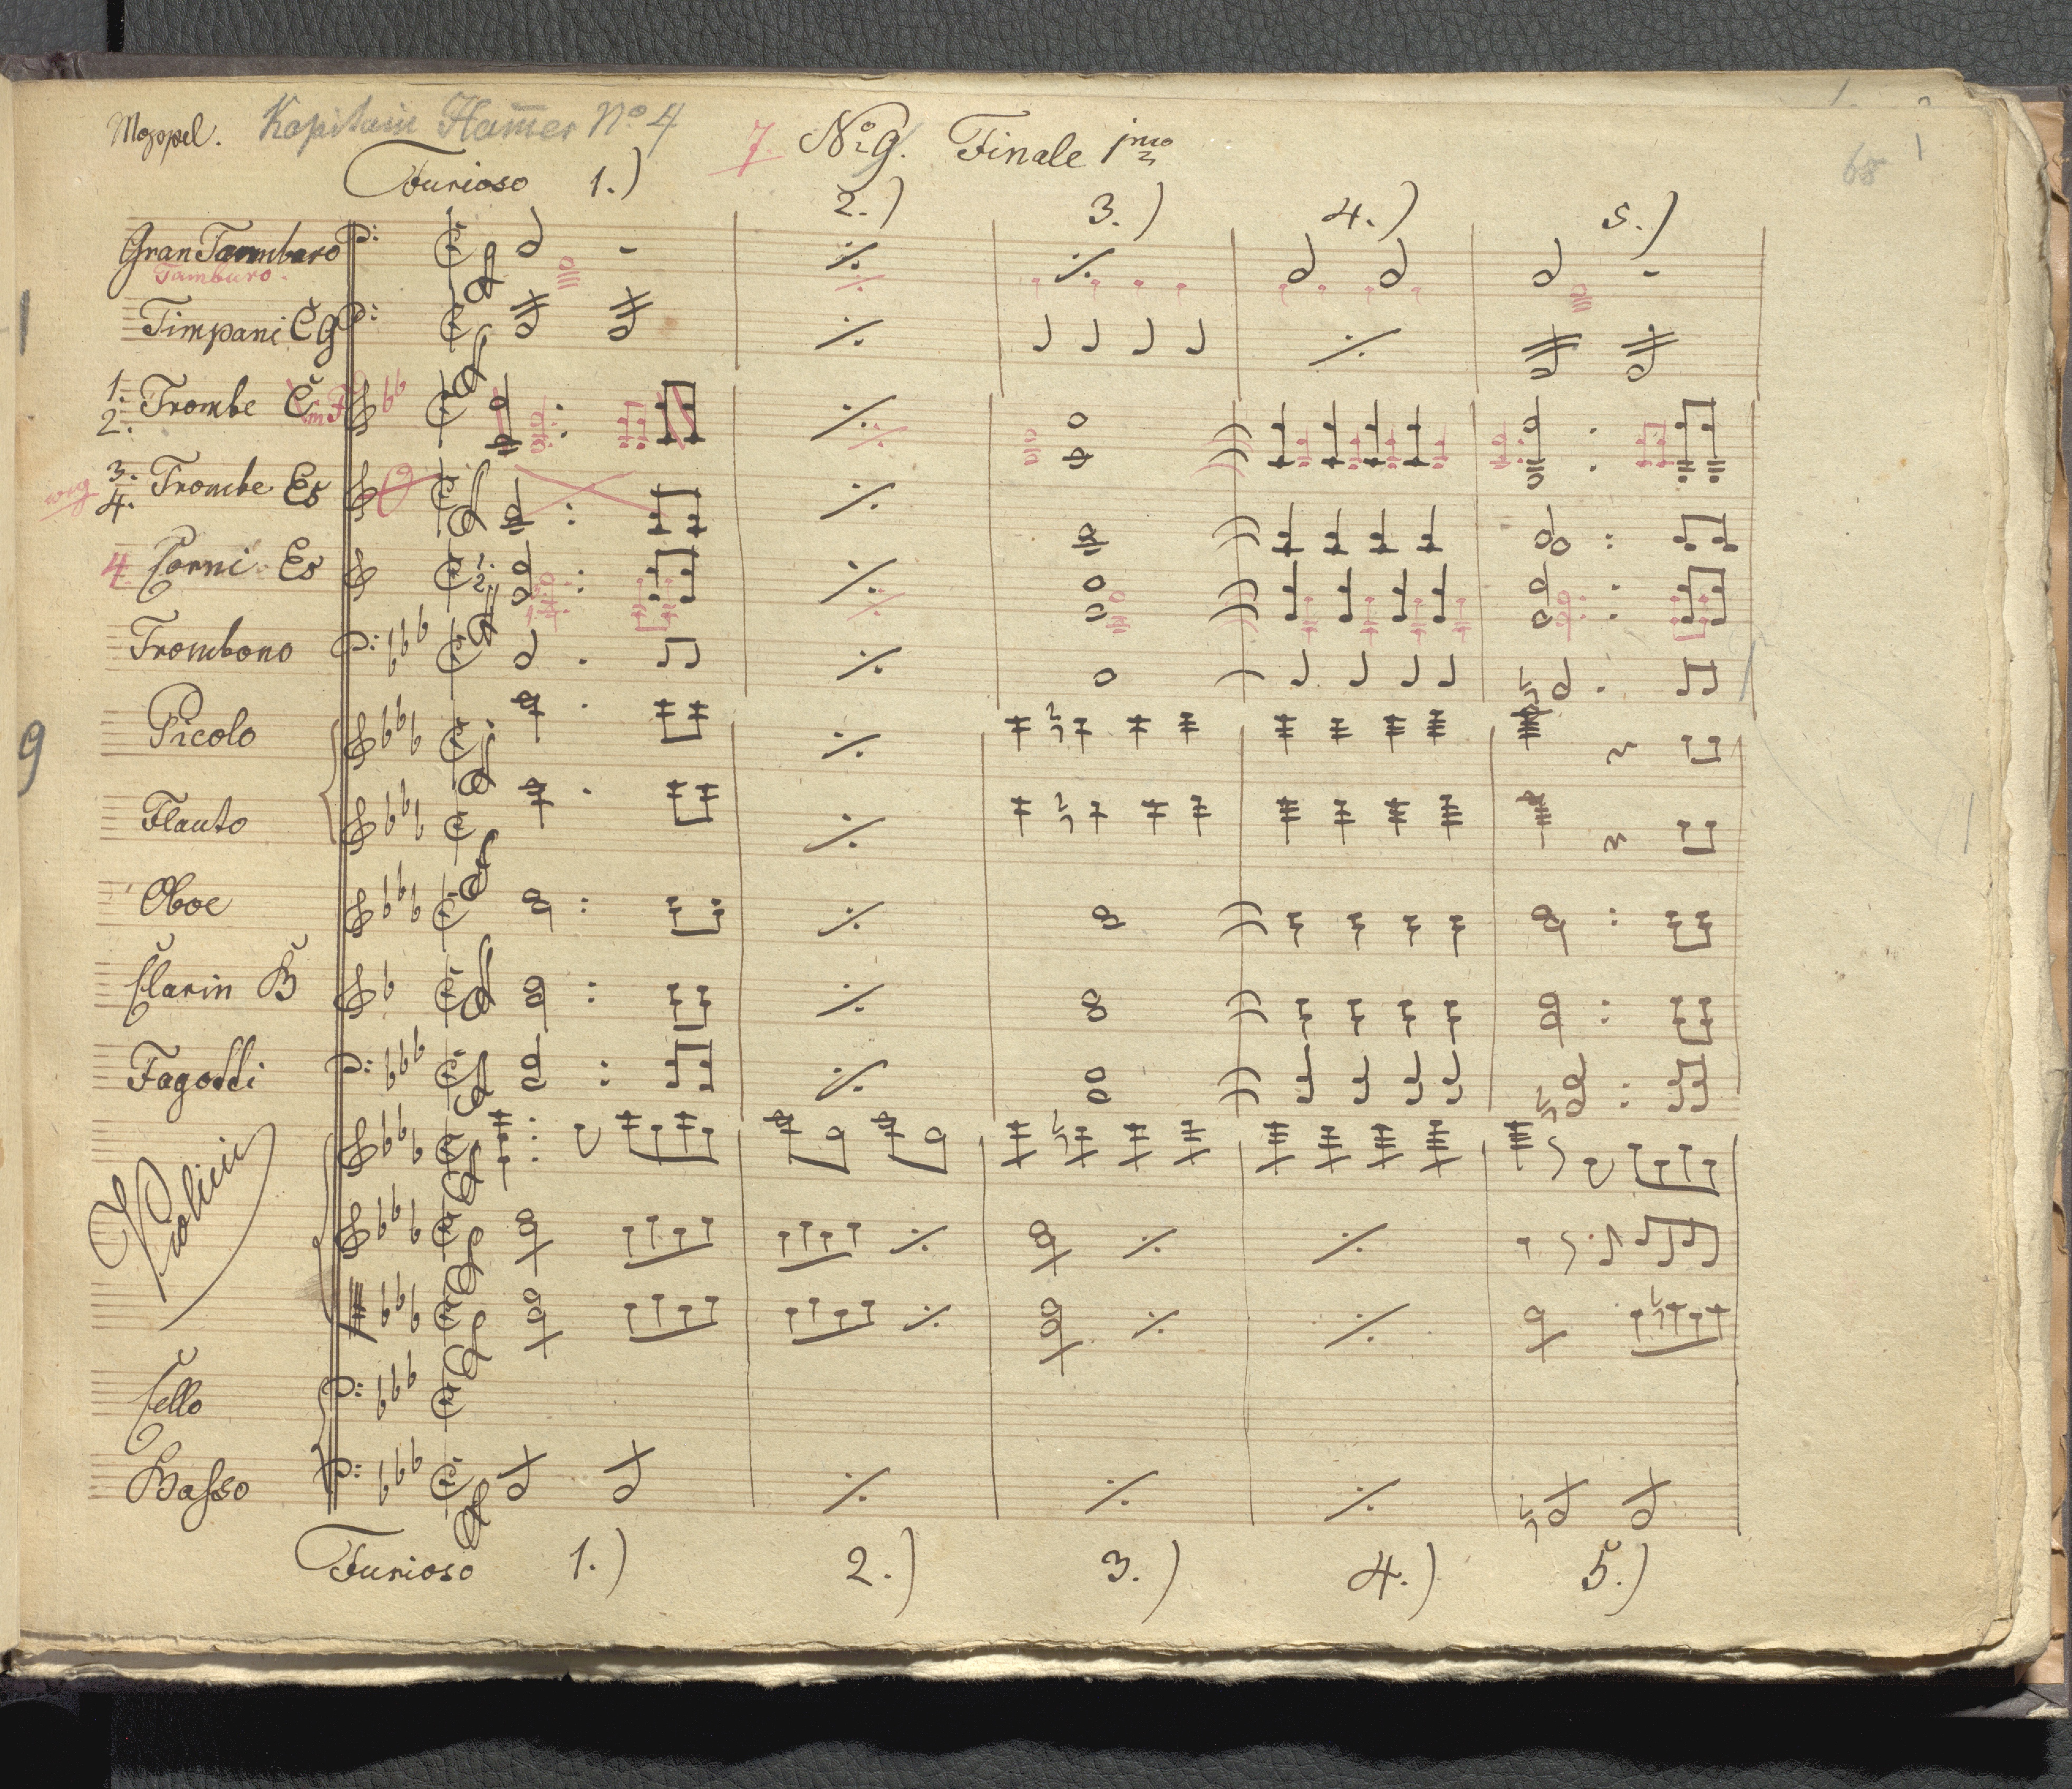 Moppel. Kapitain Ham̅er No 4 7 No 9. Finale 1mo 68 1
Furioso 1.) 2.) 3.) 4.) 5.)
Gran Tamburo
Tamburo.
Timpani C G
1. 2. Trombe C in F
weg 3. 4. Trombe Es
4 Corni Es 1. 2.
Trombono
Picolo
9
Flauto
Oboe
Clarin B
Fagotti
Violini
Cello
Basso
Furioso 1.) 2.) 3.) 4.) 5.)